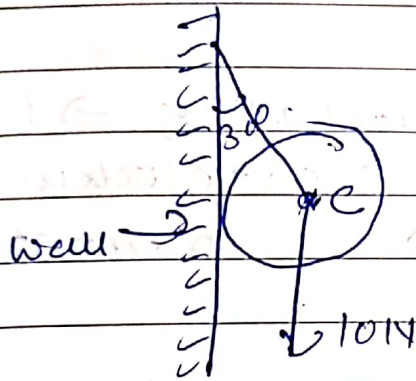 30
C
Wall
10N